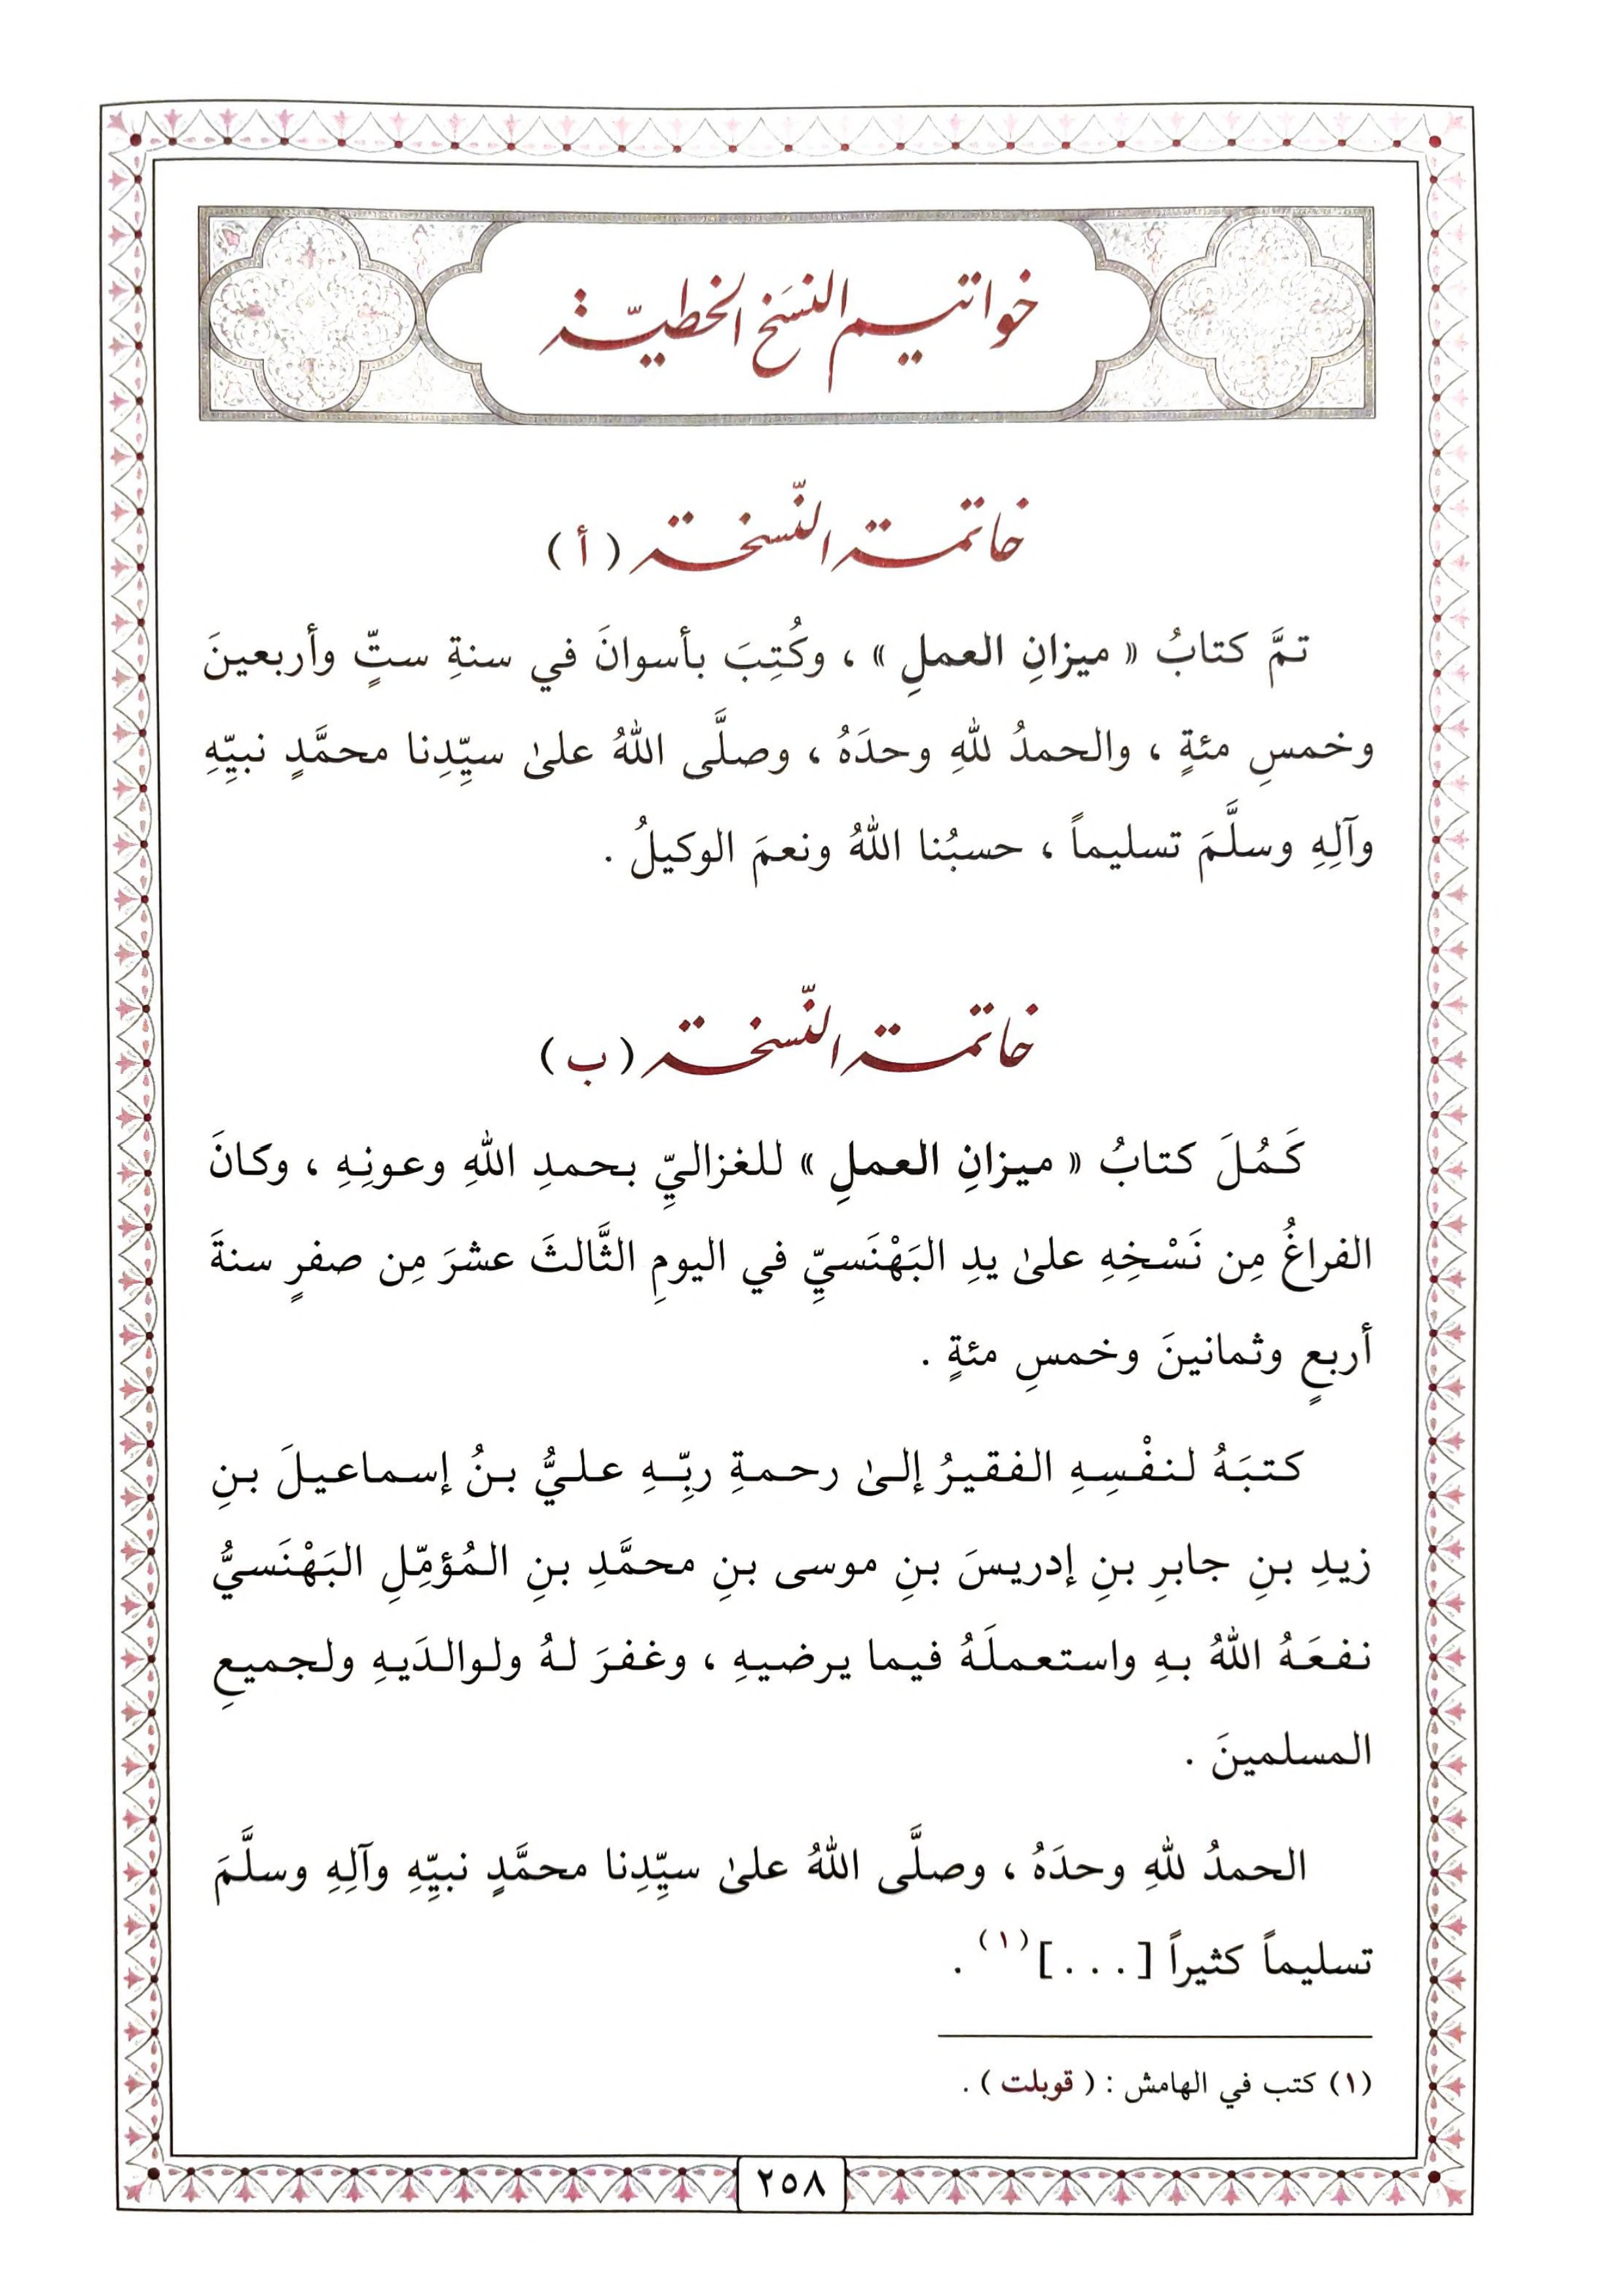 خواتيم النسَخ الخطيّة
خاتمة النّسخة ( أ )
تمَّ كتابُ « ميزانِ العملِ » ، وكُتِبَ بأسوانَ في سنةِ ستٍّ وأربعينَ
وخمسِ مئةٍ ، والحمدُ للهِ وحدَهُ ، وصلَّى اللهُ علىٰ سيِّدِنا محمَّدٍ نبيِّهِ
وآلِهِ وسلَّمَ تسليماً ، حسبُنا اللهُ ونعمَ الوكيلُ .
خاتمة النّسخة ( ب )
كَمُلَ كتابُ « ميزانِ العملِ » للغزاليِّ بحمدِ اللهِ وعونِهِ ، وكانَ
الفراغُ مِن نَسْخِهِ علىٰ يدِ البَهْنَسيِّ في اليومِ الثَّالثَ عشرَ مِن صفرٍ سنةَ
أربعٍ وثمانينَ وخمسِ مئةٍ .
كتبَهُ لنفْسِهِ الفقيرُ إلىٰ رحمةِ ربِّهِ عليُّ بنُ إسماعيلَ بنِ
زيدِ بنِ جابرِ بنِ إدريسَ بنِ موسى بنِ محمَّدِ بنِ المُؤمِّلِ البَهْنَسيُّ
نفعَهُ اللهُ بهِ واستعملَهُ فيما يرضيهِ ، وغفرَ لهُ ولوالدَيهِ ولجميعِ
المسلمينَ .
الحمدُ للهِ وحدَهُ ، وصلَّى اللهُ علىٰ سيِّدِنا محمَّدٍ نبيِّهِ وآلِهِ وسلَّمَ
تسليماً كثيراً [ . . . ] (١) .
(١) كتب في الهامش : ( قوبلت ) .
٢٥٨